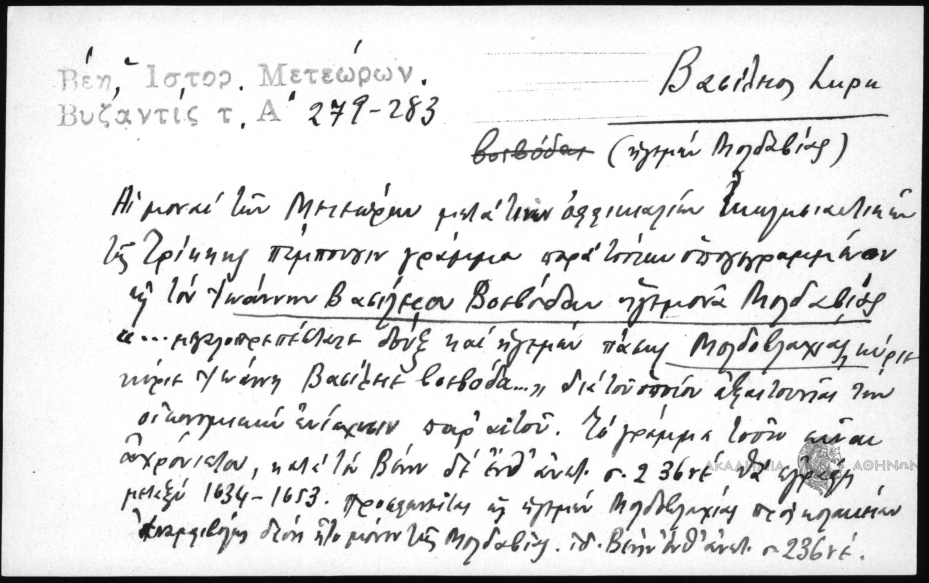 Βέη, Ιστορ. Μετεώρων.
Βυζαντίς τ. Α΄ 279-283
Βασίλειος
βοεβόδας (ηγεμών Μολδαβίας)
Αἱ μοναί τῶν Μετεώρων μετά τινων ὀφφικιαλίων
τῆς Τρίκκης πέμπουσιν γράμμα παρά τούτων ὑπογεγραμμένον
εἰς τόν Ἰωάννην Βασίλειον Βοεβόδαν ἡγεμόνα Μολδαβίας
"... μεγαλοπρεπέστατε δούξ καί ἡγεμών πάσης Μολδοβλαχίας κύριε
κύριε Ἰωάννη Βασίλειε βοεβόδα..." διά τοῦ ὁποίου ἐξαιτοῦνται τήν
οἰκονομικήν ἐνίσχυσιν παρ' αὐτοῦ. Τό γράμμα τοῦτο εἶναι
ἀχρόνιστον, κατά τόν Βέην δέ ἔνθ' ἀνωτ. σ. 236 νέ΄ θά ἐγράφη
μεταξύ 1634-1653. προσφωνεῖται εἰς ἡγεμών Μολδοβλαχίας
διότι ἦτο μόνον τῆς Μολδαβίας. ἰδ. Βέην ἔνθ' ἀνωτ. σ. 236 νέ.
ΑΚΑΔΗΜΙΑ ΑΘΗΝΩΝ